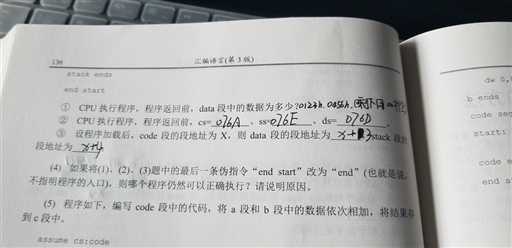 130
汇编语言(第 3 版)
stack ends
end start
① CPU 执行程序，程序返回前，data 段中的数据为多少？0123h、0456h、
② CPU 执行程序，程序返回前，cs= 076A 、ss= 076E 、ds= 076D 。
③ 设程序加载后，code 段的段地址为 X，则 data 段的段地址为 X+3 stack 段的
段地址为 X+4 。
(4) 如果将(1)、(2)、(3)题中的最后一条伪指令“end start”改为“end”(也就是说，
不指明程序的入口)，则哪个程序仍然可以正确执行？请说明原因。
(5) 程序如下，编写 code 段中的代码，将 a 段和 b 段中的数据依次相加，将结果存
到 c 段中。
assume cs:code
dw 0,
b ends
code seg
start:
code e
end s